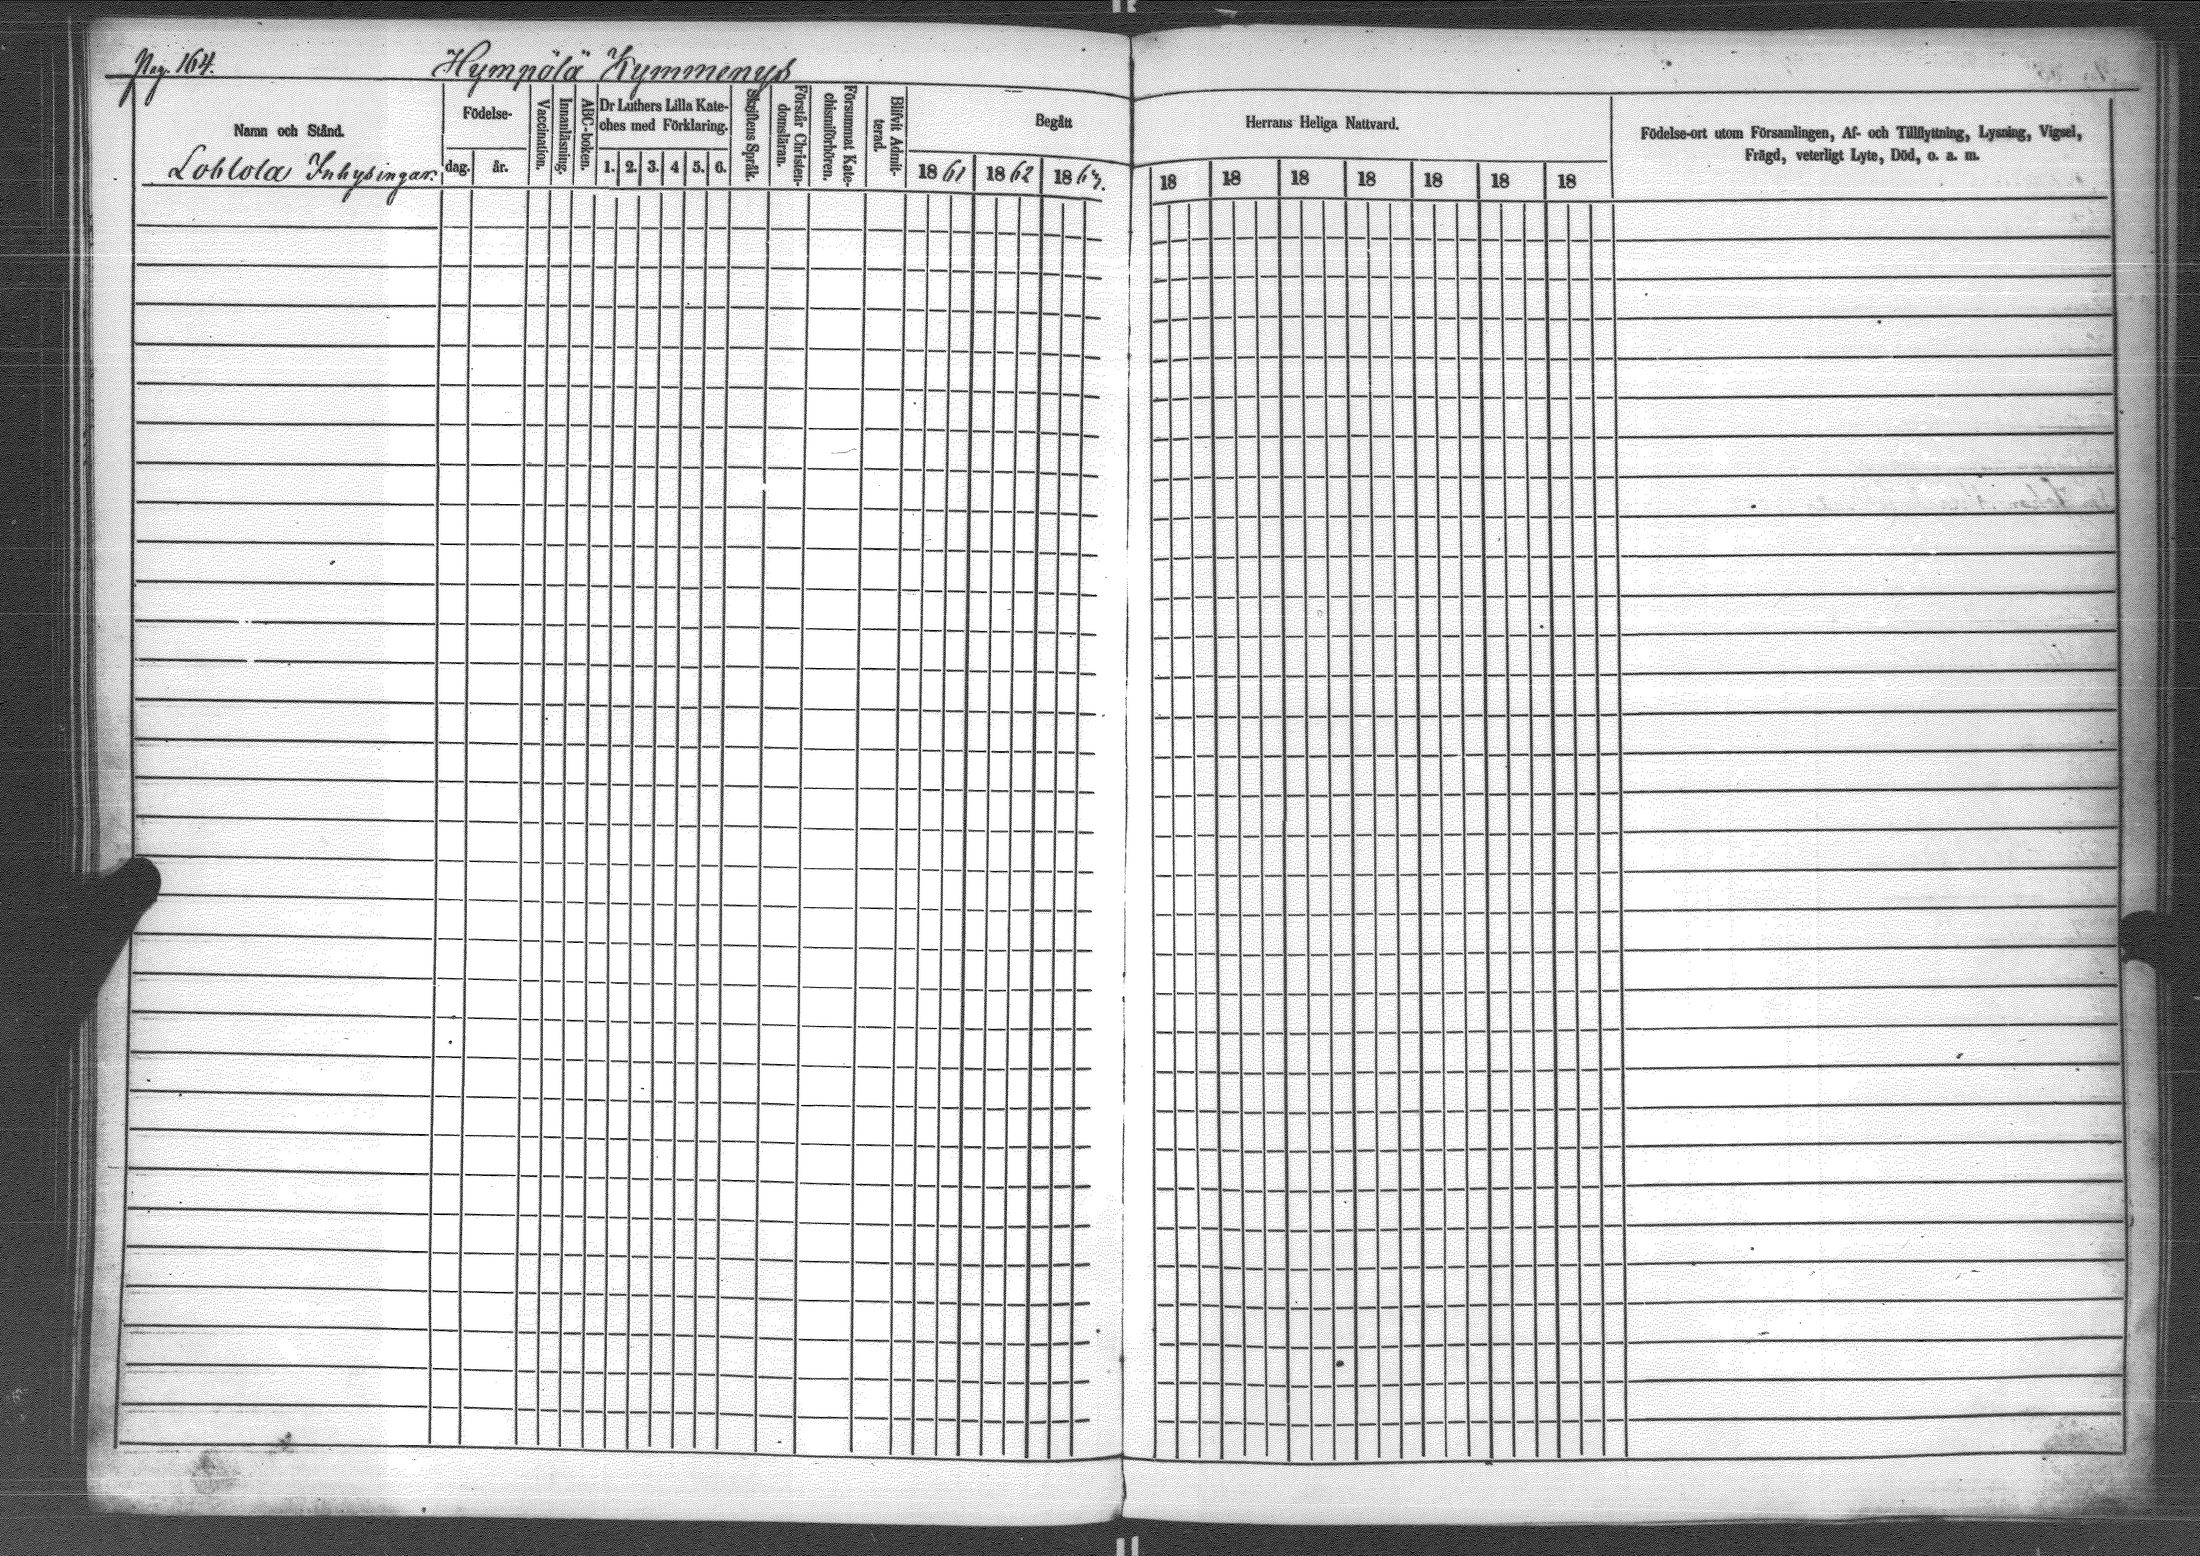 Pag. 164.
Hympölä Kymmenys
Namn och Stånd.
Lohlola Inhysingar.
Födelse-
dag.
år.
Vaccination.
Innanläsning.
ABC-boken.
Dr Luthers Lilla Kate-
ches med Förklaring.
1. 2. 3. 4 5. 6.
Skriftens Språk.
Förstår Christen-
domsläran.
Försummat Kate-
chismiförhören.
Blifvit Admit-
terad.
Begått
1861 1862 1863.
Herrans Heliga Nattvard.
18 18 18 18 18 18 18
Födelse-ort utom Församlingen, Af- och Tillflyttning, Lysning, Vigsel,
Frägd, veterligt Lyte, Död, o. a. m.